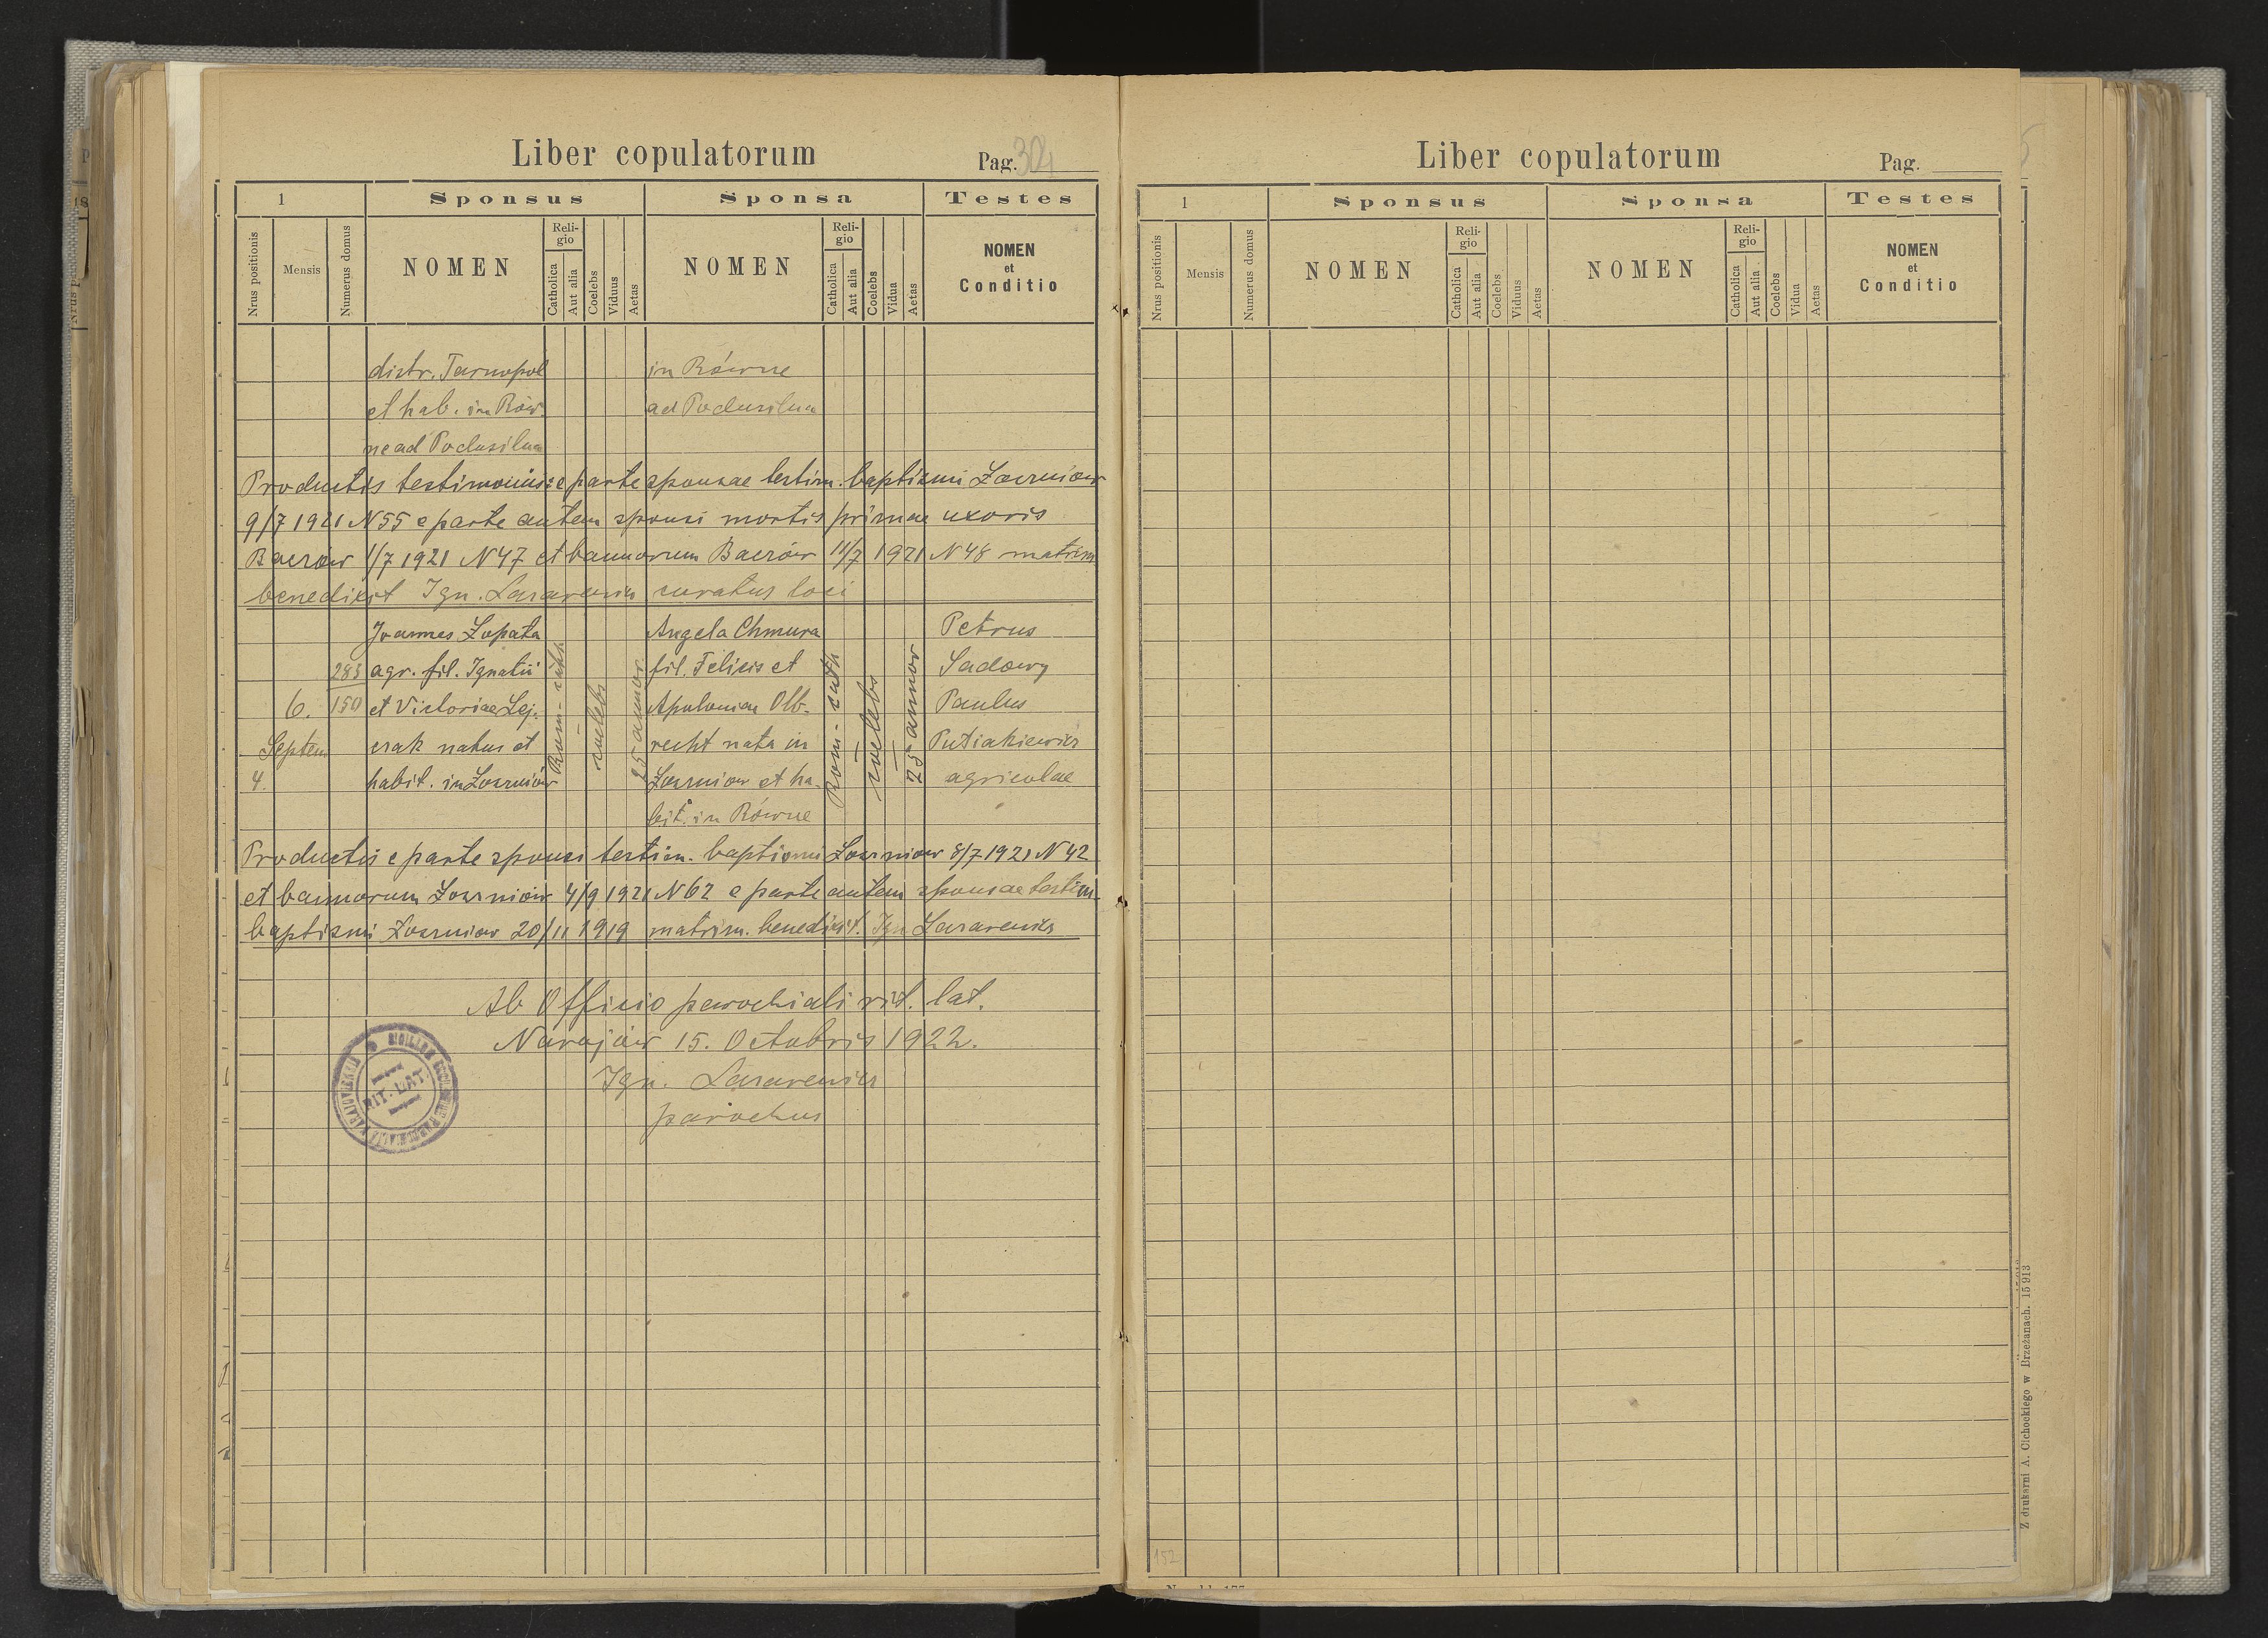 Liber copulatorum
Pag. 304
1
Sponsus
Sponsa
Testes
Nrus positionis
Mensis
Numerus domus
NOMEN
Religio
Catholica
Aut alia
Coelebs
Viduus
Aetas
NOMEN
Religio
Catholica
Aut alia
Coelebs
Vidua
Aetas
NOMEN
et
Conditio
distr. Tarnopol in Równe
et hab. in Rów- ad Podusilna
ne ad Podusilna
Productis testimoniis: e parte sponsae testim. baptismi Łozniów
9/7 1921 N 55 e parte autem sponsi mortis primae uxoris
1/7 1921 N 47 et bannorum 11/7 1921 N 48 matrim.
benedixit Ign. Lazarewicz curatus loci
Joannes Łopata Angela Chmura Petrus
283 agr. fil. Ignatii fil. Felicis et Sadowy
6. 150 et Victoriae Lej- Apoloniae Olb- Paulus
Septem czak natus et recht nata in Putiakiewicz
4. habit. in et ha- agricolae
bit. in Równe
Rom-cath
coelebs
25 annor
Rom-cath
coelebs
25 annor
Productis e parte sponsi testim. baptismi 8/7 1921 N 42
et bannorum 4/9 1921 N 62 e parte autem sponsae testim.
baptismi 20/11 1919 matrim. benedixit. Ign Lazarewicz
Ab Officio parochiali rit. lat.
Narajów 15. Octobris 1922.
Ign. Lazarewicz
parochus
RIT. LAT
Liber copulatorum
Pag.
1
Sponsus
Sponsa
Testes
Nrus positionis
Mensis
Numerus domus
NOMEN
Religio
Catholica
Aut alia
Coelebs
Viduus
Aetas
NOMEN
Religio
Catholica
Aut alia
Coelebs
Vidua
Aetas
NOMEN
et
Conditio
Z drukarni A. Cichockiego w Brzeżanach. 15913
152